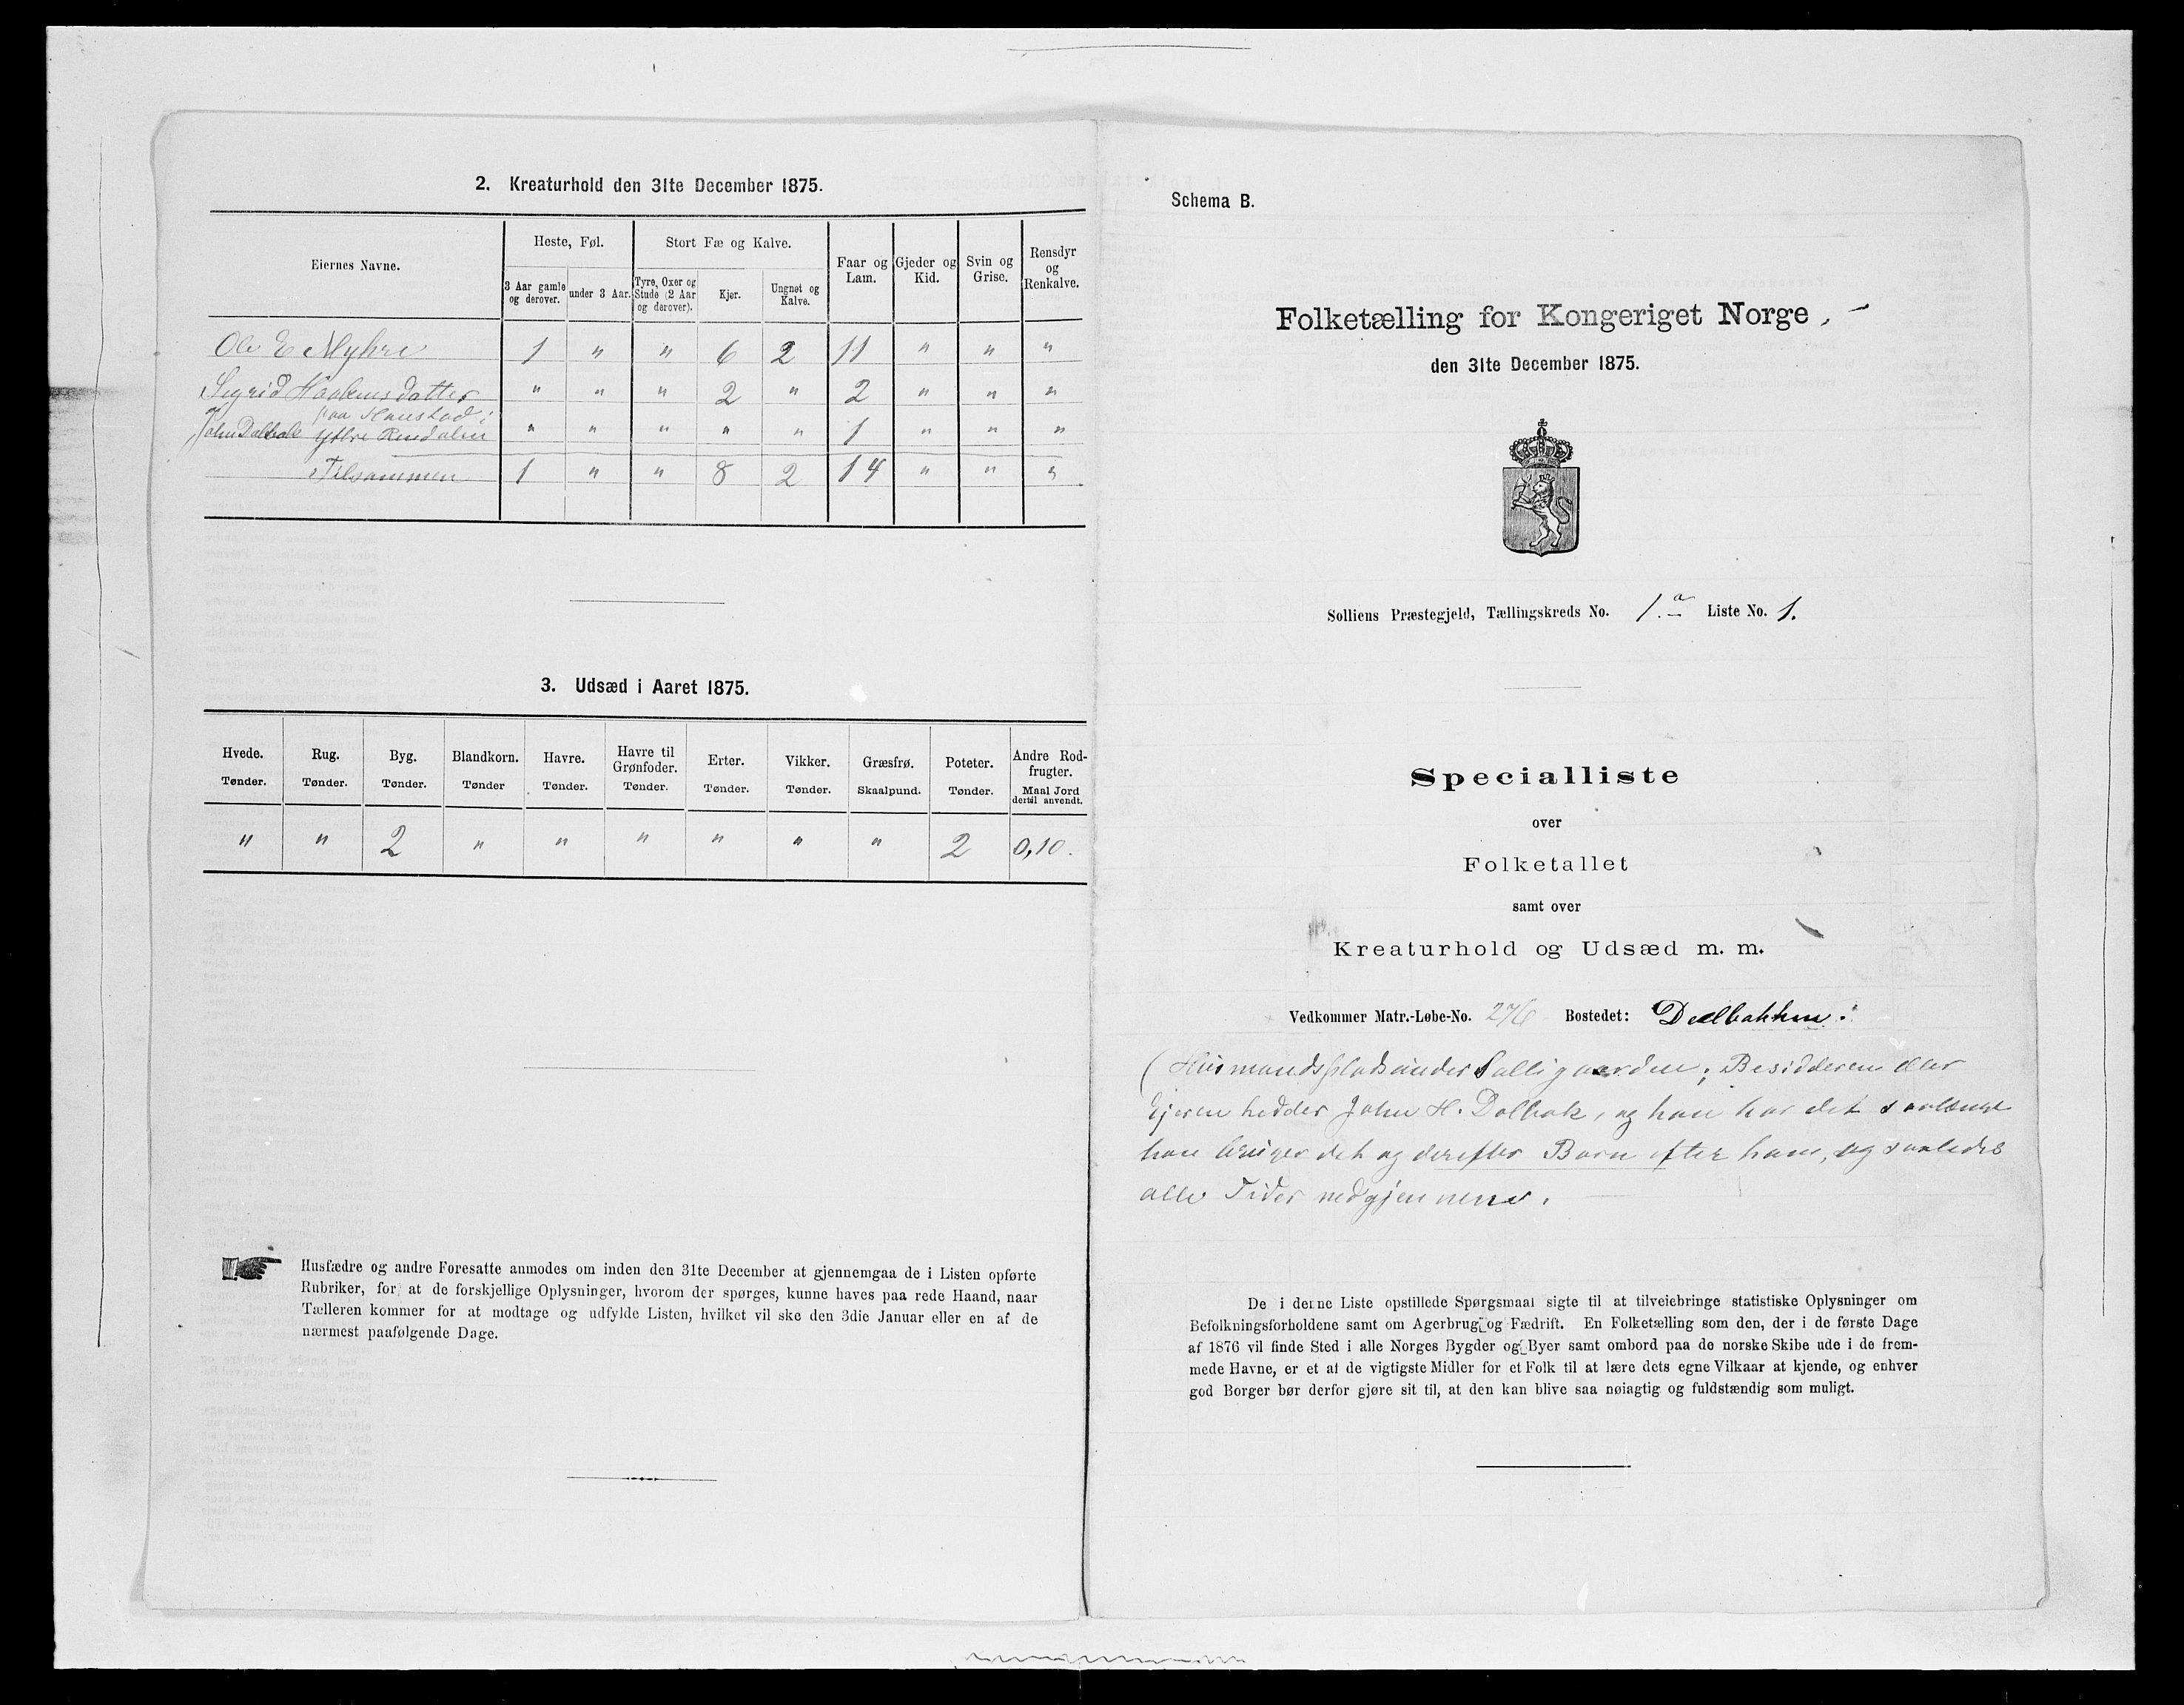 2. Kreaturhold den 31te December 1875.
Eiernes Navne.
Heste, Føl.
Stort Fæ og Kalve.
Faar og Lam.
Gjeder og Kid.
Svin og Grise.
Rensdyr og Renkalve.
3 Aar gamle og derover.
under 3 Aar.
Tyre, Oxer og Stude (2 Aar og derover).
Kjør.
Ungnøt og Kalve.
Ole E Myhre 1 " " 6 2 11 " " "
Sigrid Haakensdatter " " " 2 " 2 " " "
paa Hanestad i
John Dalbak Yttre Rendalen " " " " " 1 " " "
Tilsammen 1 " " 8 2 14 " " "
3. Udsæd i Aaret 1875.
Hvede. Rug. Byg. Blandkorn. Havre. Havre til Grønfoder. Erter. Vikker. Græsfrø. Poteter. Andre Rodfrugter.
Tønder. Tønder. Tønder. Tønder Tønder. Tønder. Tønder. Tønder. Skaalpund. Tønder. Maal Jord dertil anvendt.
" " 2 " " " " " " 2 0,10.
Husfædre og andre Foresatte anmodes om inden den 31te December at gjennemgaa de i Listen opførte
Rubriker, for at de forskjellige Oplysninger, hvorom der spørges, kunne haves paa rede Haand, naar
Tælleren kommer for at modtage og udfylde Listen, hvilket vil ske den 3die Januar eller en af de
nærmest paafølgende Dage.
Schema B.
Folketælling for Kongeriget Norge
den 31te December 1875.
Solliens Præstegjeld, Tællingskreds No. 1.a Liste No. 1.
Specialliste
over
Folketallet
samt over
Kreaturhold og Udsæd m. m.
Vedkommer Matr.-Løbe-No. 276 Bostedet: Dalbakken.
(Husmandsplads under Solligaarden; Besidderen eller
Ejeren hedder John H. Dalbak, og han har det saalænge
han bruger det og derefter Børn efter ham, og saaledes
alle Tider nedgjennem.
De i denne Liste opstillede Spørgsmaal sigte til at tilveiebringe statistiske Oplysninger om
Befolkningsforholdene samt om Agerbrug og Fædrift. En Folketælling som den, der i de første Dage
af 1876 vil finde Sted i alle Norges Bygder og Byer samt ombord paa de norske Skibe ude i de frem-
mede Havne, er et af de vigtigste Midler for et Folk til at lære dets egne Vilkaar at kjende, og enhver
god Borger bør derfor gjøre sit til, at den kan blive saa nøiagtig og fuldstændig som muligt.